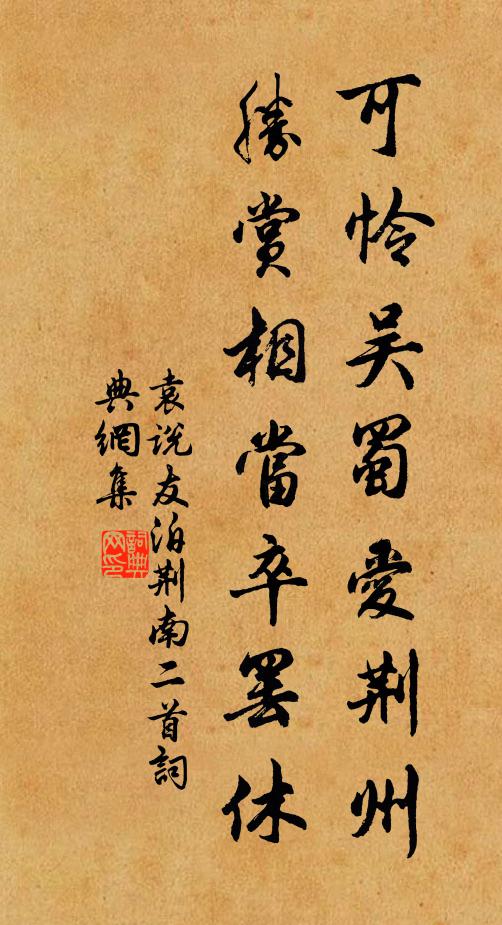 可怜吴蜀爱荆州
勝赏相當卒罢休
袁说友泊荆南二首詞
典網集
詞典
网印